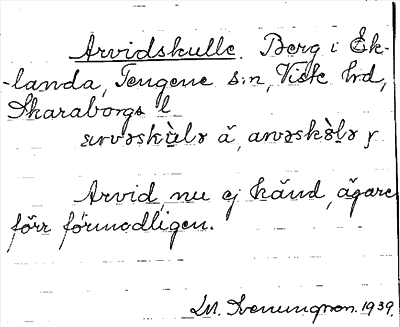 Arvidskulle. Berg i Ek-
-landa, Tengene s:n, Viste hrd,
Skaraborgs l.
arvəskùlə ä, arvəskòlə y
Arvid, nu ej känd, ägare
förr förmodligen.
M. Svenungsson. 1939.